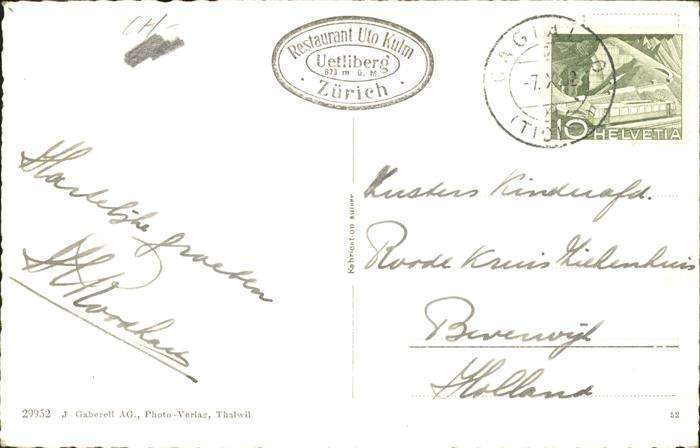 CH-
Restaurant Uto Kulm
Uetliberg
873 m ü. M.
Zürich
-7.X
(TI
10 HELVETIA
Hartelijke groeten
Zusters Kinderafd.
Roode Kruis Ziekenhuis
Beverwijk
Holland
Fabrication suisse
29952 J. Gaberell AG., Photo-Verlag, Thalwil
52